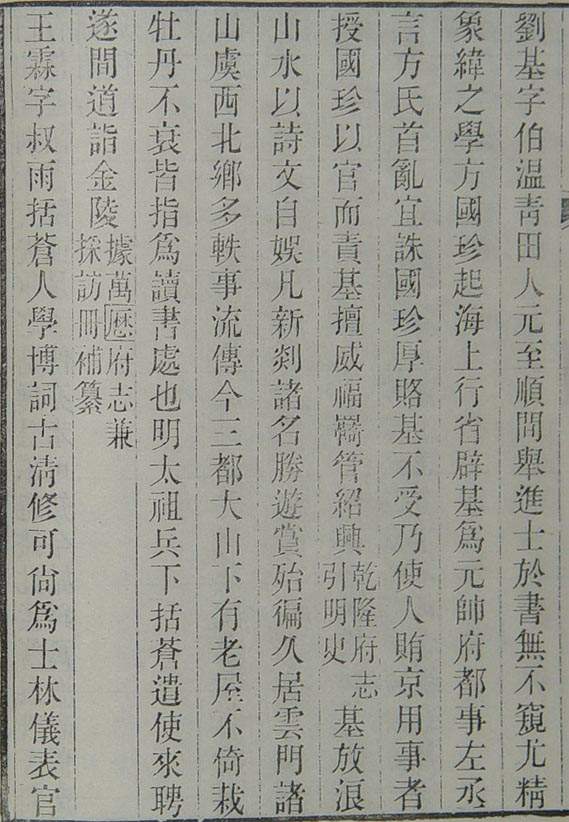 劉基字伯温靑田人元至順間舉進士於書無不窺尤精
象緯之學方國珍起海上行省辟基爲元帥府都事左丞
言方氏首亂宜誅國珍厚賂基不受乃使人賄京用事者
授國珍以官而責基擅威福羈管紹興乾隆府志引明史基放浪
山水以詩文自娛凡新剡諸名勝遊賞殆徧久居雲門諸
山虞西北鄉多軼事流傳今三都大山下有老屋不倚栽
牡丹不衰皆指爲讀書處也明太祖兵下括蒼遣使來聘
遂間道詣金陵據萬厯府志兼採訪冊補纂
王霖字叔雨括蒼人學博詞古淸修可尙爲士林儀表官